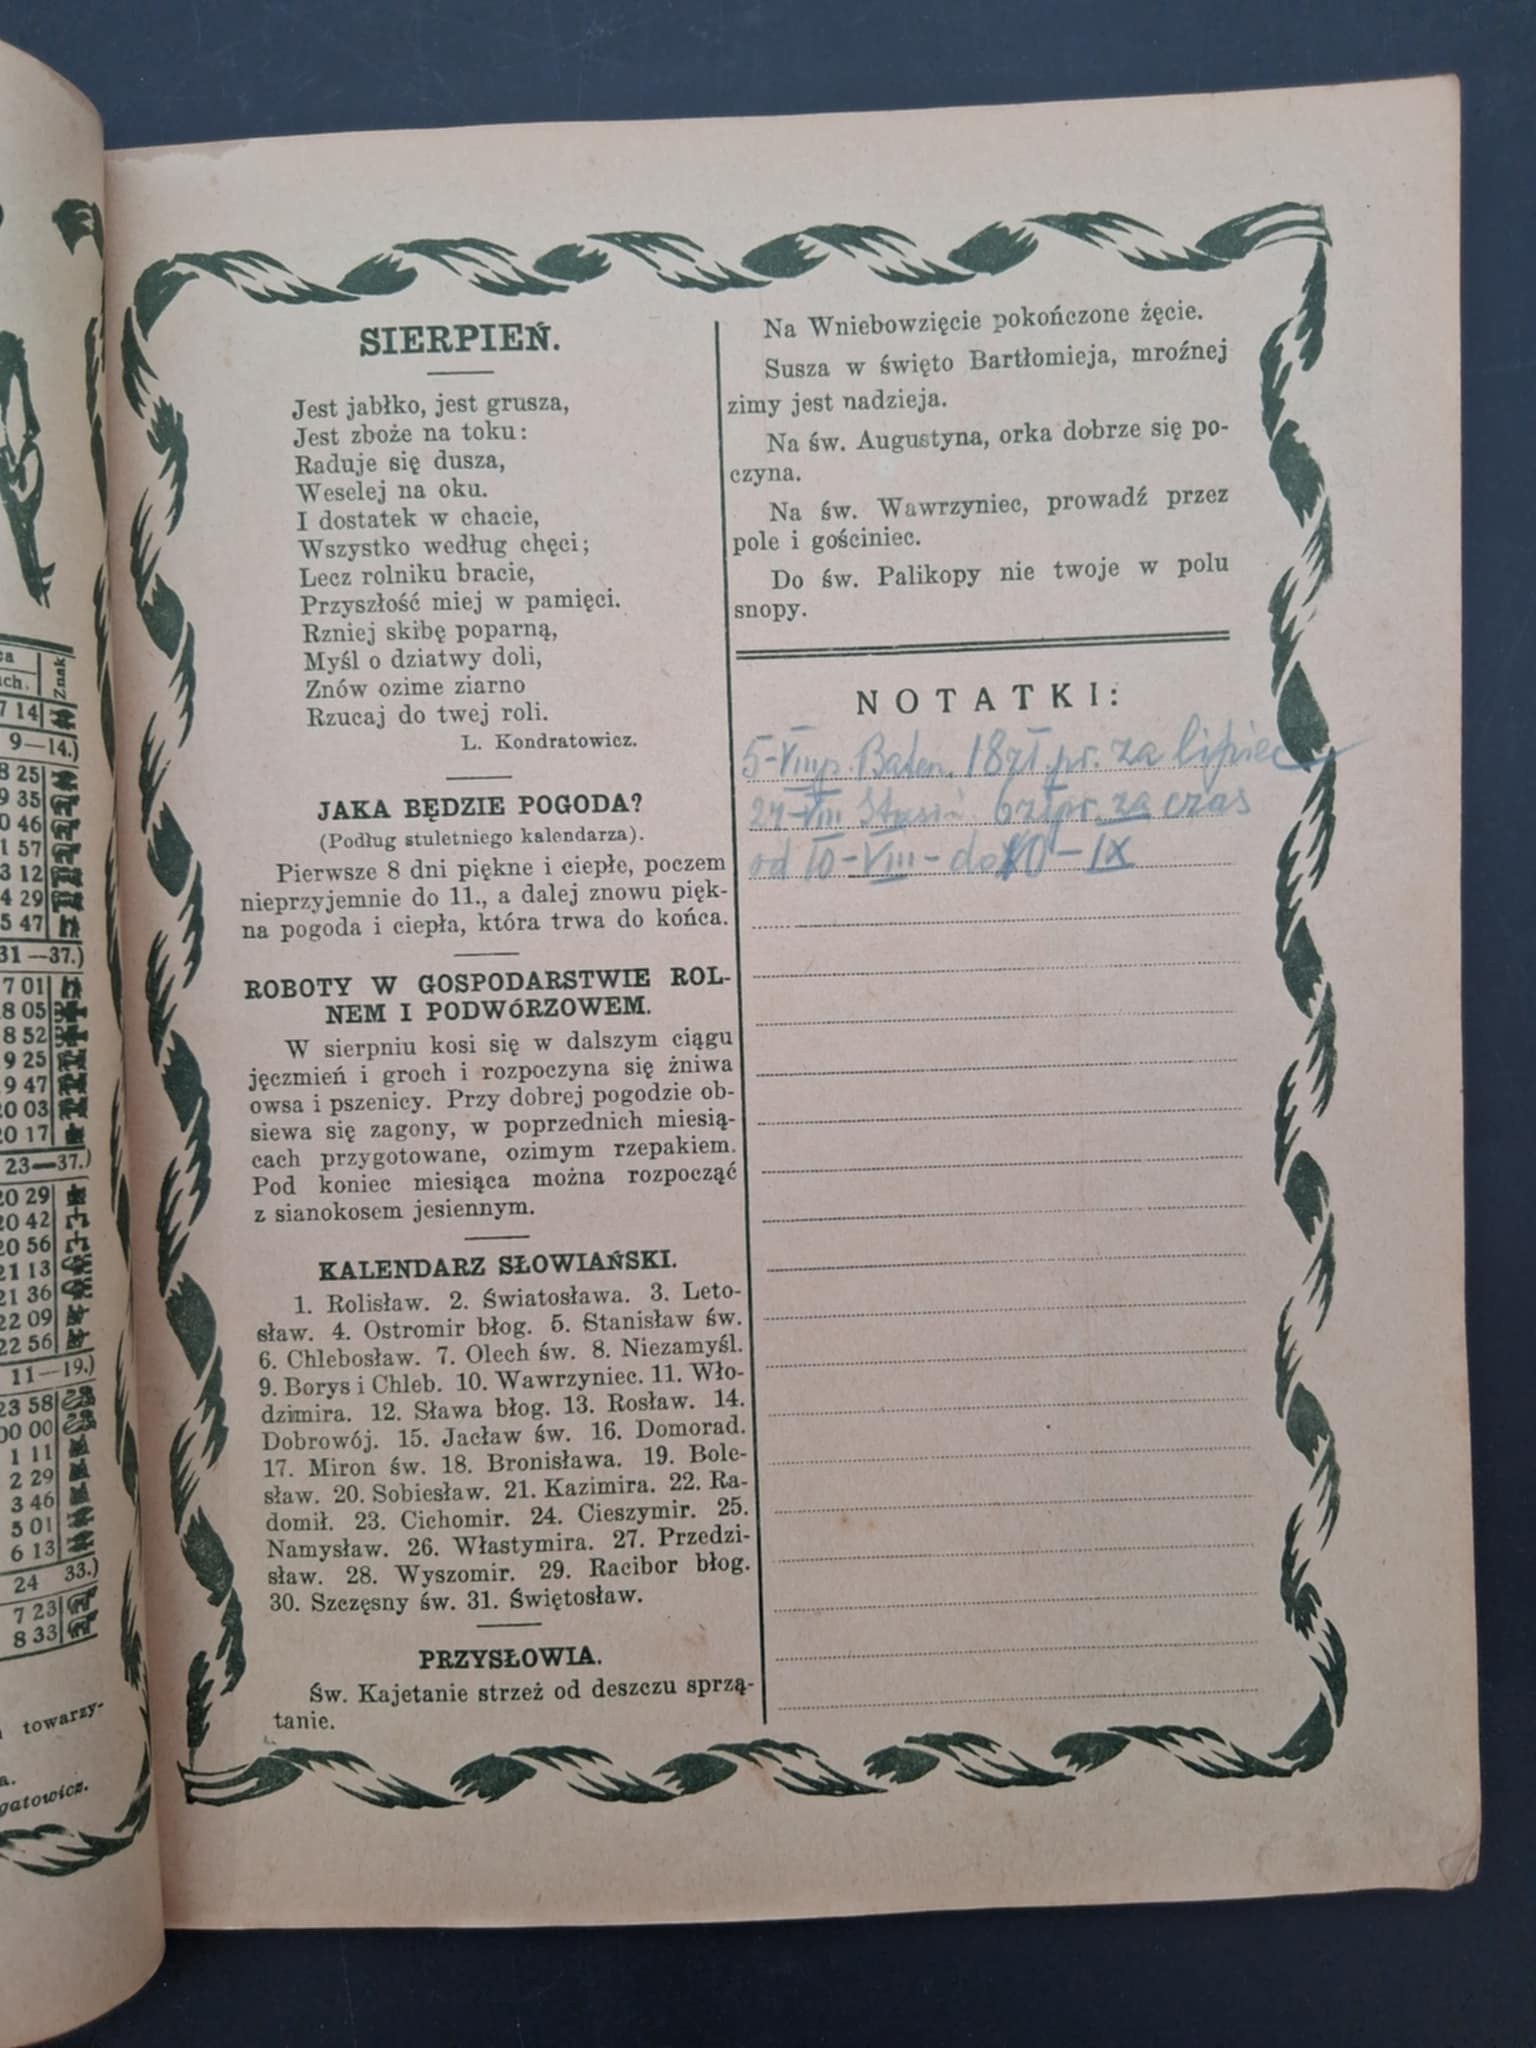 SIERPIEŃ.
Jest jabłko, jest grusza,
Jest zboże na toku:
Raduje się dusza,
Weselej na oku.
I dostatek w chacie,
Wszystko według chęci;
Lecz rolniku bracie,
Przyszłość miej w pamięci.
Rzniej skibę poparną,
Myśl o dziatwy doli,
Znów ozime ziarno
Rzucaj do twej roli.
L. Kondratowicz.
JAKA BĘDZIE POGODA?
(Podług stuletniego kalendarza).
Pierwsze 8 dni piękne i ciepłe, poczem
nieprzyjemnie do 11., a dalej znowu pięk-
na pogoda i ciepła, która trwa do końca.
ROBOTY W GOSPODARSTWIE ROL-
NEM I PODWÓRZOWEM.
W sierpniu kosi się w dalszym ciągu
jęczmień i groch i rozpoczyna się żniwa
owsa i pszenicy. Przy dobrej pogodzie ob-
siewa się zagony, w poprzednich miesią-
cach przygotowane, ozimym rzepakiem.
Pod koniec miesiąca można rozpocząć
z sianokosem jesiennym.
KALENDARZ SŁOWIAŃSKI.
1. Rolisław. 2. Światosława. 3. Leto-
sław. 4. Ostromir błog. 5. Stanisław św.
6. Chlebosław. 7. Olech św. 8. Niezamyśl.
9. Borys i Chleb. 10. Wawrzyniec. 11. Wło-
dzimira. 12. Sława błog. 13. Rosław. 14.
Dobrowój. 15. Jacław św. 16. Domorad.
17. Miron św. 18. Bronisława. 19. Bole-
sław. 20. Sobiesław. 21. Kazimira. 22. Ra-
domił. 23. Cichomir. 24. Cieszymir. 25.
Namysław. 26. Włastymira. 27. Przedzi-
sław. 28. Wyszomir. 29. Racibor błog.
30. Szczęsny św. 31. Świętosław.
PRZYSŁOWIA.
Św. Kajetanie strzeż od deszczu sprzą-
tanie.
Na Wniebowzięcie pokończone żęcie.
Susza w święto Bartłomieja, mroźnej
zimy jest nadzieja.
Na św. Augustyna, orka dobrze się po-
czyna.
Na św. Wawrzyniec, prowadź przez
pole i gościniec.
Do św. Palikopy nie twoje w polu
snopy.
NOTATKI:
5-VIII p. 18 zł. pr. za lipiec
24-VIII 6 zł pr. za czas
od 10-VIII-do 10-IX
ca
ch. Znak
7 14
9—14.)
8 25
9 35
0 46
1 57
3 12
4 29
5 47
31—37.)
7 01
8 05
8 52
9 25
9 47
20 03
20 17
23—37.)
20 29
20 42
20 56
21 13
21 36
22 09
22 56
11—19.)
23 58
00 00
1 11
2 29
3 46
5 01
6 13
24 33.)
7 23
8 33
towarzy-
a.
gatowicz.